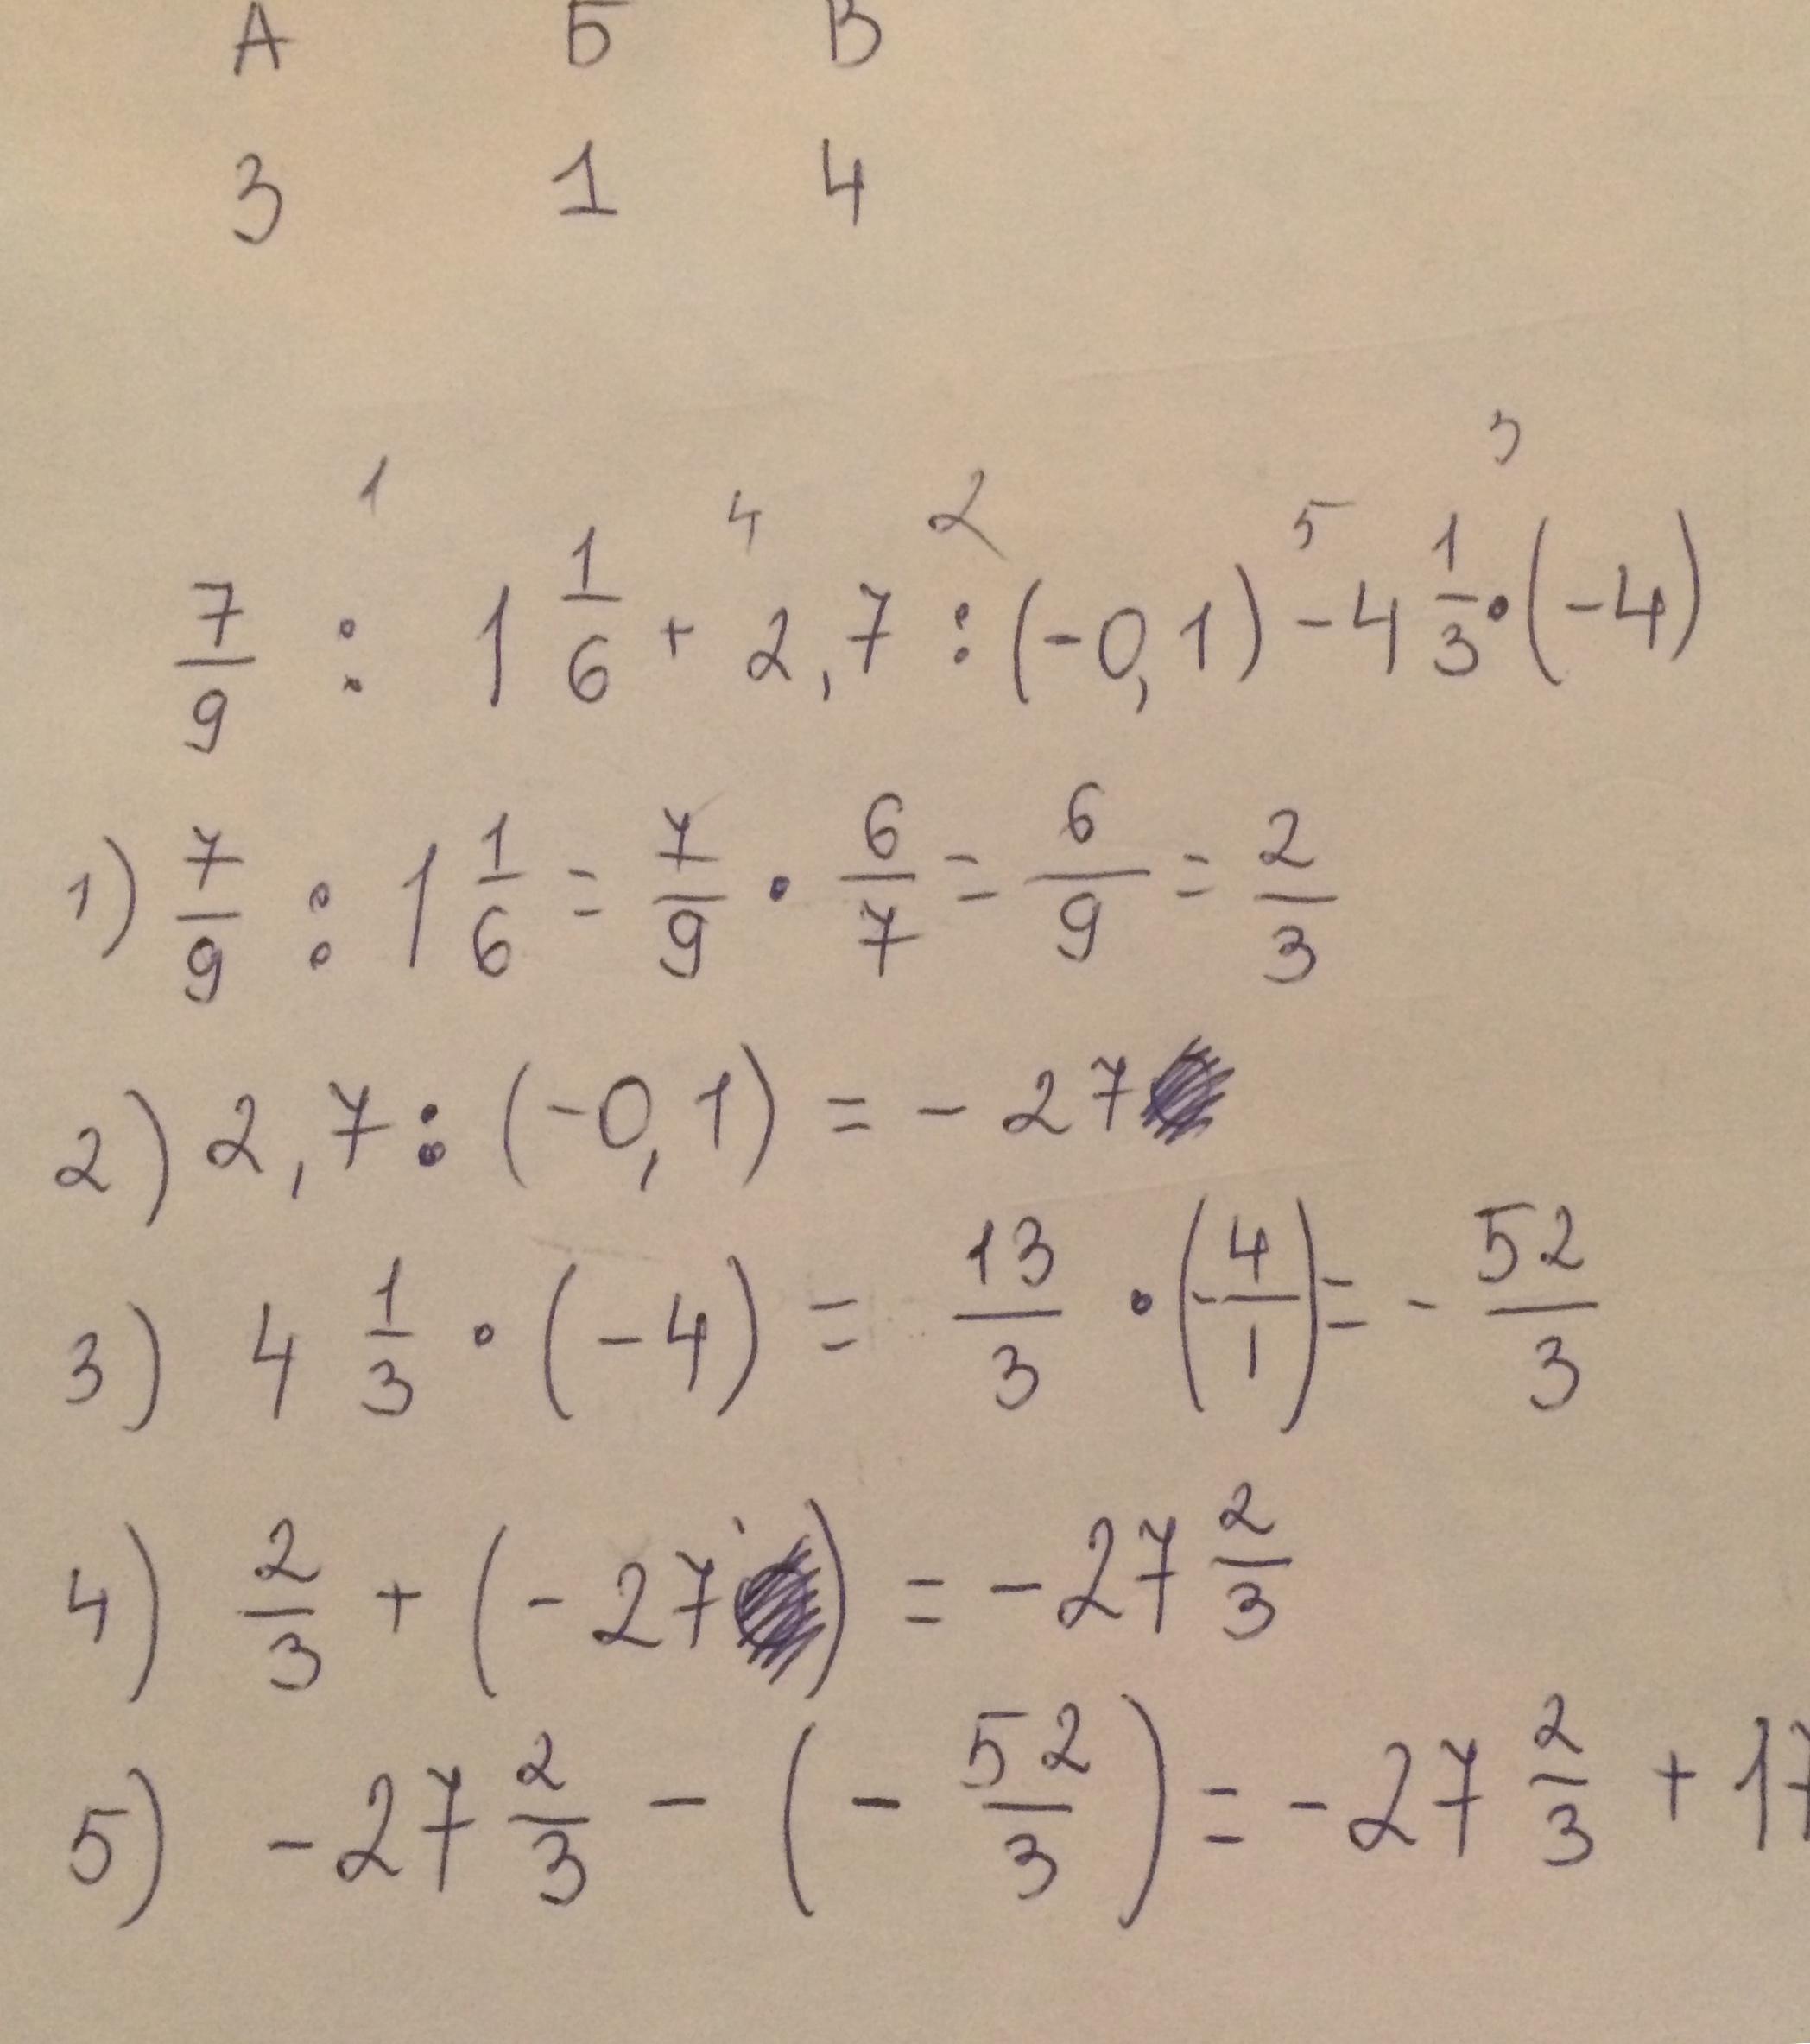 А Б В
3 1 4
1 4 2 5 3
7/9 : 1 1/6 + 2,7 : (-0,1) - 4 1/3 · (-4)
1) 7/9 : 1 1/6 = 7/9 · 6/7 = 6/9 = 2/3
2) 2,7 : (-0,1) = - 27
3) 4 1/3 · (-4) = 13/3 · (-4/1) = - 52/3
4) 2/3 + (-27) = -27 2/3
5) -27 2/3 - (- 52/3) = -27 2/3 + 17